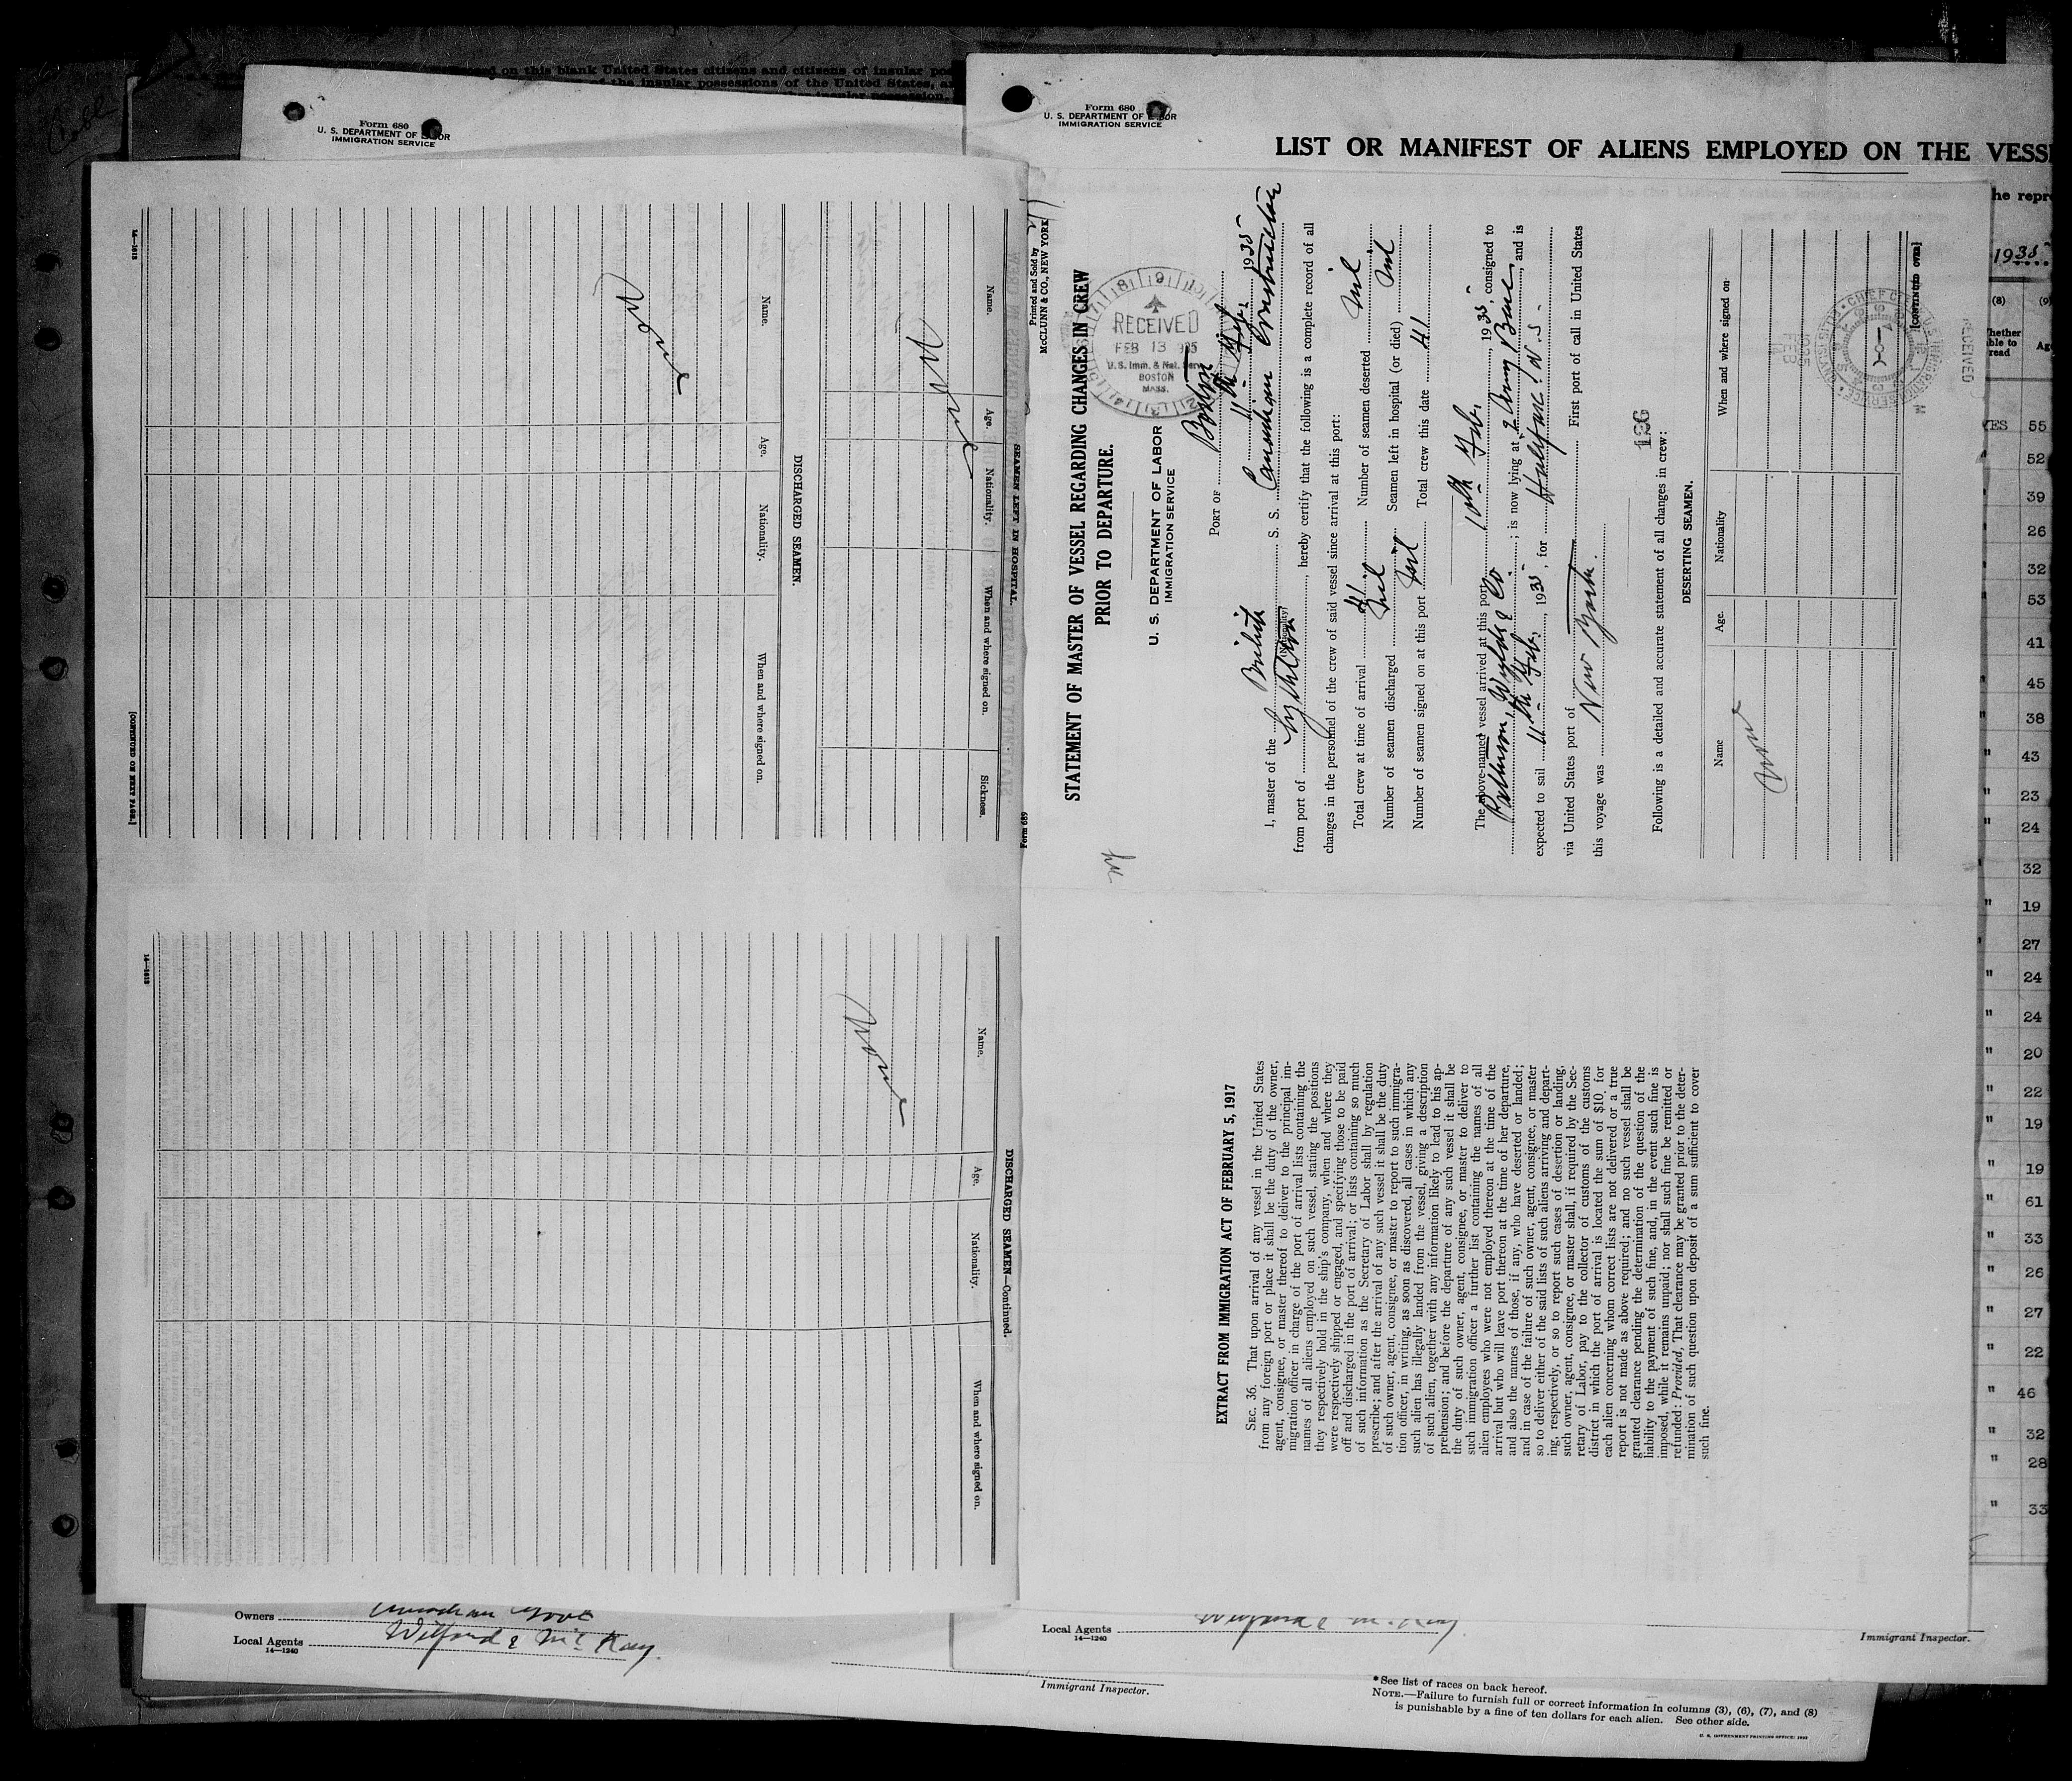 Form 680
U. S. DEPARTMENT OF LABOR
IMMIGRATION SERVICE
on this blank United States citizens and citizens of insular pos
the insular possessions of the United States, a
Name.
Age.
Nationality.
When and where signed on.
Sickness.
SEAMEN LEFT IN HOSPITAL.
None
DISCHARGED SEAMEN.
Name.
Age.
Nationality.
When and where signed on.
None
[CONTINUED ON NEXT PAGE.]
14—1813
DISCHARGED SEAMEN—Continued.
Name.
Age.
Nationality.
When and where signed on.
None
14—1813
Owners
Local Agents Wilford & McKay
14—1240
Immigrant Inspector.
Form 680
U. S. DEPARTMENT OF LABOR
IMMIGRATION SERVICE
LIST OR MANIFEST OF ALIENS EMPLOYED ON THE VESSE
Form 689
Printed and Sold by
McCLUNN & CO., NEW YORK
STATEMENT OF MASTER OF VESSEL REGARDING CHANGES IN CREW
PRIOR TO DEPARTURE.
U. S. DEPARTMENT OF LABOR
IMMIGRATION SERVICE
RECEIVED
FEB 13 1935
U. S. Imm. & Nat. Serv.
BOSTON
MASS.
PORT OF Boston
11th Feb. 1935
I, master of the British S. S. Canadian Constructor
(Nationality)
from port of , hereby certify that the following is a complete record of all
changes in the personnel of the crew of said vessel since arrival at this port:
Total crew at time of arrival 41 Number of seamen deserted Nil
Number of seamen discharged Nil Seamen left in hospital (or died) Nil
Number of seamen signed on at this port Nil Total crew this date 41
The above-named vessel arrived at this port 10th Feb. , 1935, consigned to
Patterson, Wylde & Co. ; is now lying at Army Base, and is
expected to sail 11th Feb. , 1935, for Halifax. N.S.
via United States port of First port of call in United States
this voyage was New York.
126
Following is a detailed and accurate statement of all changes in crew:
DESERTING SEAMEN.
Name
Age.
Nationality
When and where signed on
None
[CONTINUED OVER]
RECEIVED
1935 FEB
EXTRACT FROM IMMIGRATION ACT OF FEBRUARY 5, 1917
SEC. 36. That upon arrival of any vessel in the United States
from any foreign port or place it shall be the duty of the owner,
agent, consignee, or master thereof to deliver to the principal im-
migration officer in charge of the port of arrival lists containing the
names of all aliens employed on such vessel, stating the positions
they respectively hold in the ship's company, when and where they
were respectively shipped or engaged, and specifying those to be paid
off and discharged in the port of arrival; or lists containing so much
of such information as the Secretary of Labor shall by regulation
prescribe; and after the arrival of any such vessel it shall be the duty
of such owner, agent, consignee, or master to report to such immigra-
tion officer, in writing, as soon as discovered, all cases in which any
such alien has illegally landed from the vessel, giving a description
of such alien, together with any information likely to lead to his ap-
prehension; and before the departure of any such vessel it shall be
the duty of such owner, agent, consignee, or master to deliver to
such immigration officer a further list containing the names of all
alien employees who were not employed thereon at the time of the
arrival but who will leave port thereon at the time of her departure,
and also the names of those, if any, who have deserted or landed;
and in case of the failure of such owner, agent, consignee, or master
so to deliver either of the said lists of such aliens arriving and depart-
ing, respectively, or so to report such cases of desertion or landing,
such owner, agent, consignee, or master shall, if required by the Sec-
retary of Labor, pay to the collector of customs of the customs
district in which the port of arrival is located the sum of $10 for
each alien concerning whom correct lists are not delivered or a true
report is not made as above required; and no such vessel shall be
granted clearance pending the determination of the question of the
liability to the payment of such fine, and, in the event such fine is
imposed, while it remains unpaid; nor shall such fine be remitted or
refunded: Provided, That clearance may be granted prior to the deter-
mination of such question upon deposit of a sum sufficient to cover
such fine.
he repr
1935
(8)
(9)
Whether
able to
read
Ag
YES 55
" 52
" 39
" 26
" 32
" 53
" 41
" 45
" 38
" 43
" 23
" 24
" 32
" 19
" 27
" 24
" 24
" 20
" 22
" 19
" 19
" 61
" 33
" 26
" 27
" 22
" 46
" 32
" 28
" 33
Local Agents
14—1240
Immigrant Inspector.
*See list of races on back hereof.
NOTE.—Failure to furnish full or correct information in columns (3), (6), (7), and (8)
is punishable by a fine of ten dollars for each alien. See other side.
U. S. GOVERNMENT PRINTING OFFICE: